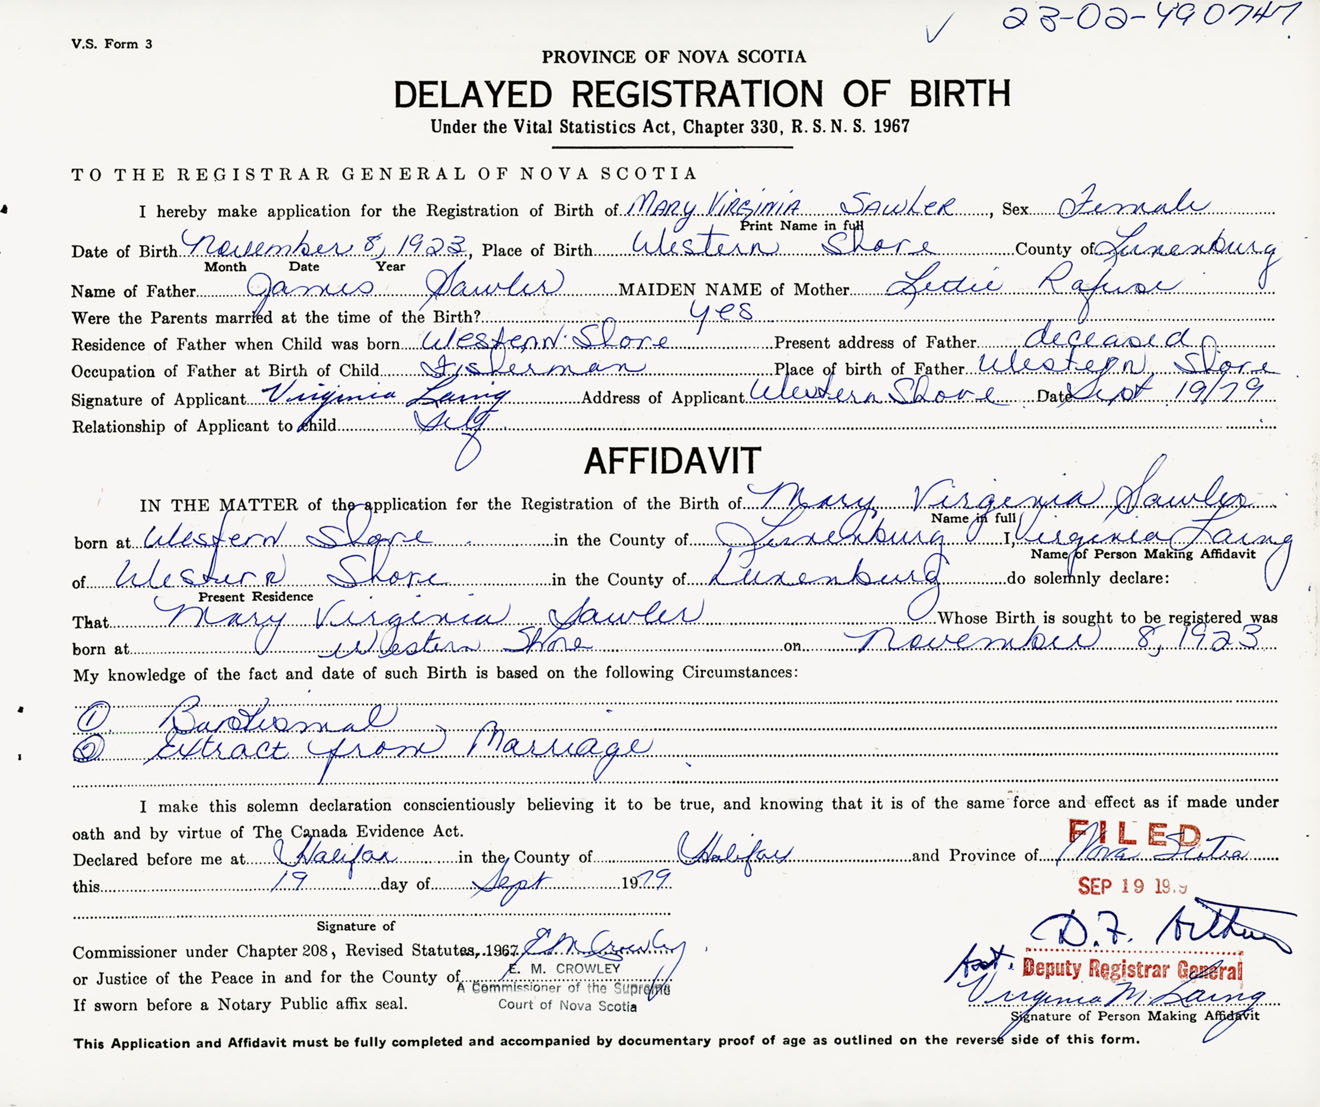 ✓ 23-02-490747
V.S. Form 3
PROVINCE OF NOVA SCOTIA
DELAYED REGISTRATION OF BIRTH
Under the Vital Statistics Act, Chapter 330, R. S. N. S. 1967
TO THE REGISTRAR GENERAL OF NOVA SCOTIA
I hereby make application for the Registration of Birth of MARY VIRGINIA SAWLER, Sex Female
Print Name in full
Date of Birth November 8, 1923, Place of Birth Western Shore County of Lunenburg
Month Date Year
Name of Father James Sawler MAIDEN NAME of Mother Lettie Rafuse
Were the Parents married at the time of the Birth? yes
Residence of Father when Child was born Western Shore Present address of Father deceased
Occupation of Father at Birth of Child Fisherman Place of birth of Father Western Shore
Signature of Applicant Virginia Laing Address of Applicant Western Shore Date Sept 19/79
Relationship of Applicant to child Self
AFFIDAVIT
IN THE MATTER of the application for the Registration of the Birth of Mary Virginia Sawler
Name in full
born at Western Shore in the County of Lunenburg I, Virginia Laing
Name of Person Making Affidavit
of Western Shore in the County of Lunenburg do solemnly declare:
Present Residence
That Mary Virginia Sawler Whose Birth is sought to be registered was
born at Western Shore on November 8, 1923
My knowledge of the fact and date of such Birth is based on the following Circumstances:
① Baptismal
② Extract from Marriage
I make this solemn declaration conscientiously believing it to be true, and knowing that it is of the same force and effect as if made under
oath and by virtue of The Canada Evidence Act.
FILED
Declared before me at Halifax in the County of Halifax and Province of Nova Scotia
this 19 day of Sept 1979.
SEP 19 19
Signature of
D.F.
Commissioner under Chapter 208, Revised Statutes, 1967 E M Crowley
Asst. Deputy Registrar General
or Justice of the Peace in and for the County of E. M. CROWLEY
A Commissioner of the Supreme
Court of Nova Scotia
Virginia M Laing
If sworn before a Notary Public affix seal.
Signature of Person Making Affidavit
This Application and Affidavit must be fully completed and accompanied by documentary proof of age as outlined on the reverse side of this form.